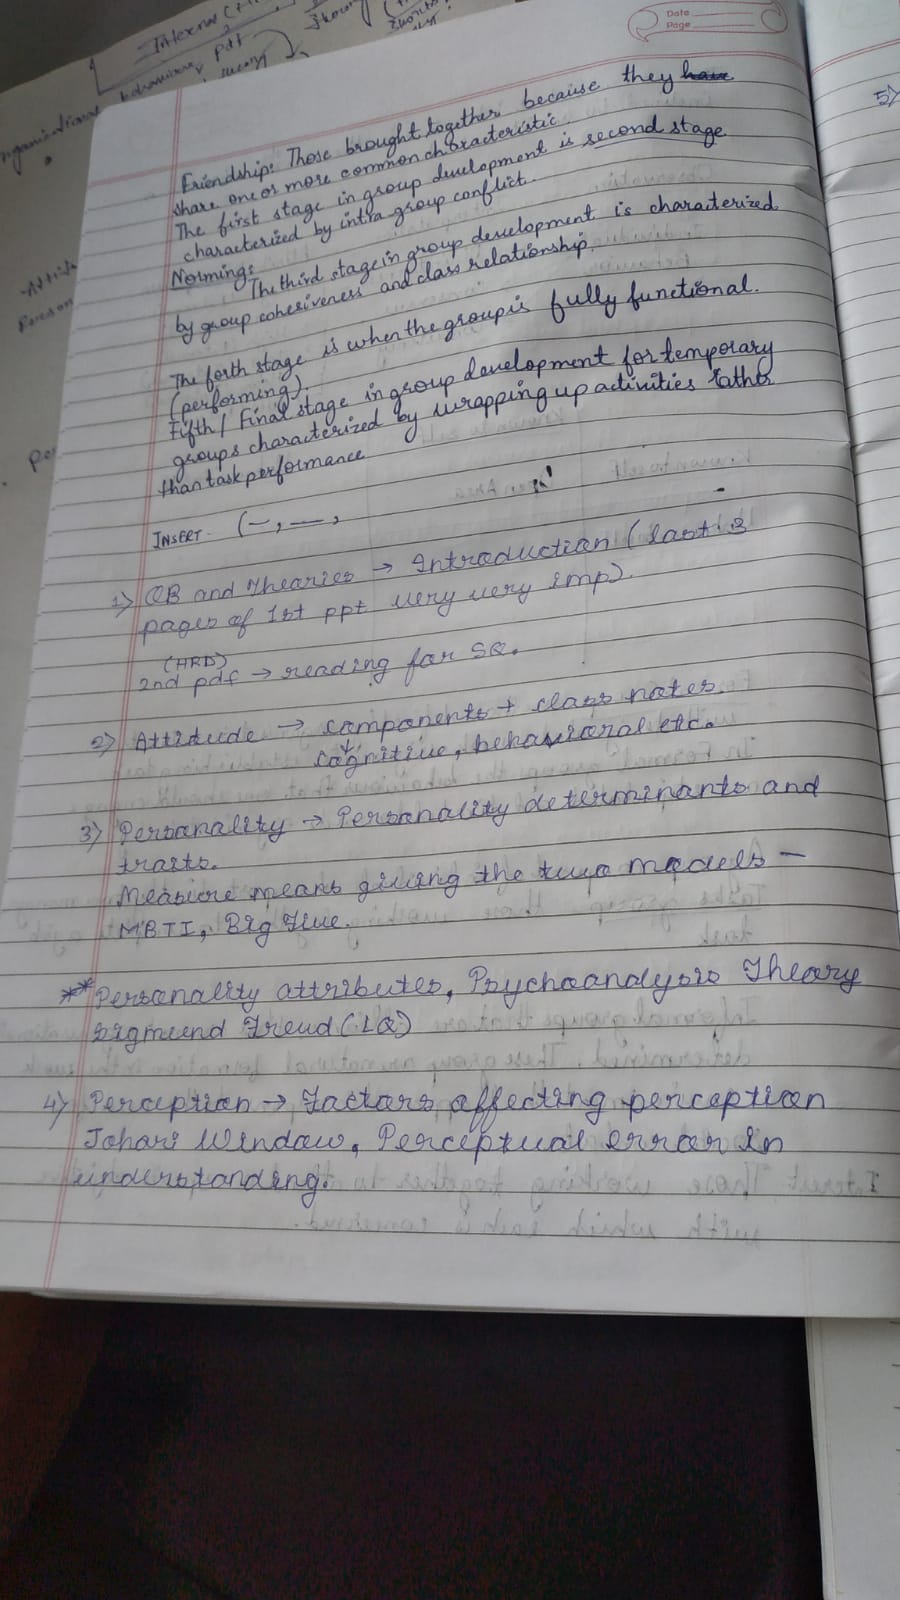 Date
Page
Friendship: Those brought together because they have
share one or more common characteristic
The first stage in group development is second stage
characterized by intra group conflict.
Norming:
The third stage in group development is characterized
by group cohesiveness and class relationship.
The forth stage is when the group is fully functional.
(performing).
Fifth / Final stage in group development for temporary
groups characterized by wrapping up activities rather
than task performance
INSERT - (—, —,
1) OB and Thearies → Introduction (last 3
pages of 1st ppt very very imp).
(HRD)
2nd pdf → reading for SQ.
2) Attitude → components + class notes.
cognitive, behavioral etc.
3) Personality → Personality determinants and
traits.
Measure means giving the two models -
MBTI, Big Five.
** Personality attributes, Psychoanalysis Theory
Sigmund Freud (LQ)
4) Perception → Factors affecting perception
Johari Window, Perceptual error in
understanding.
5)